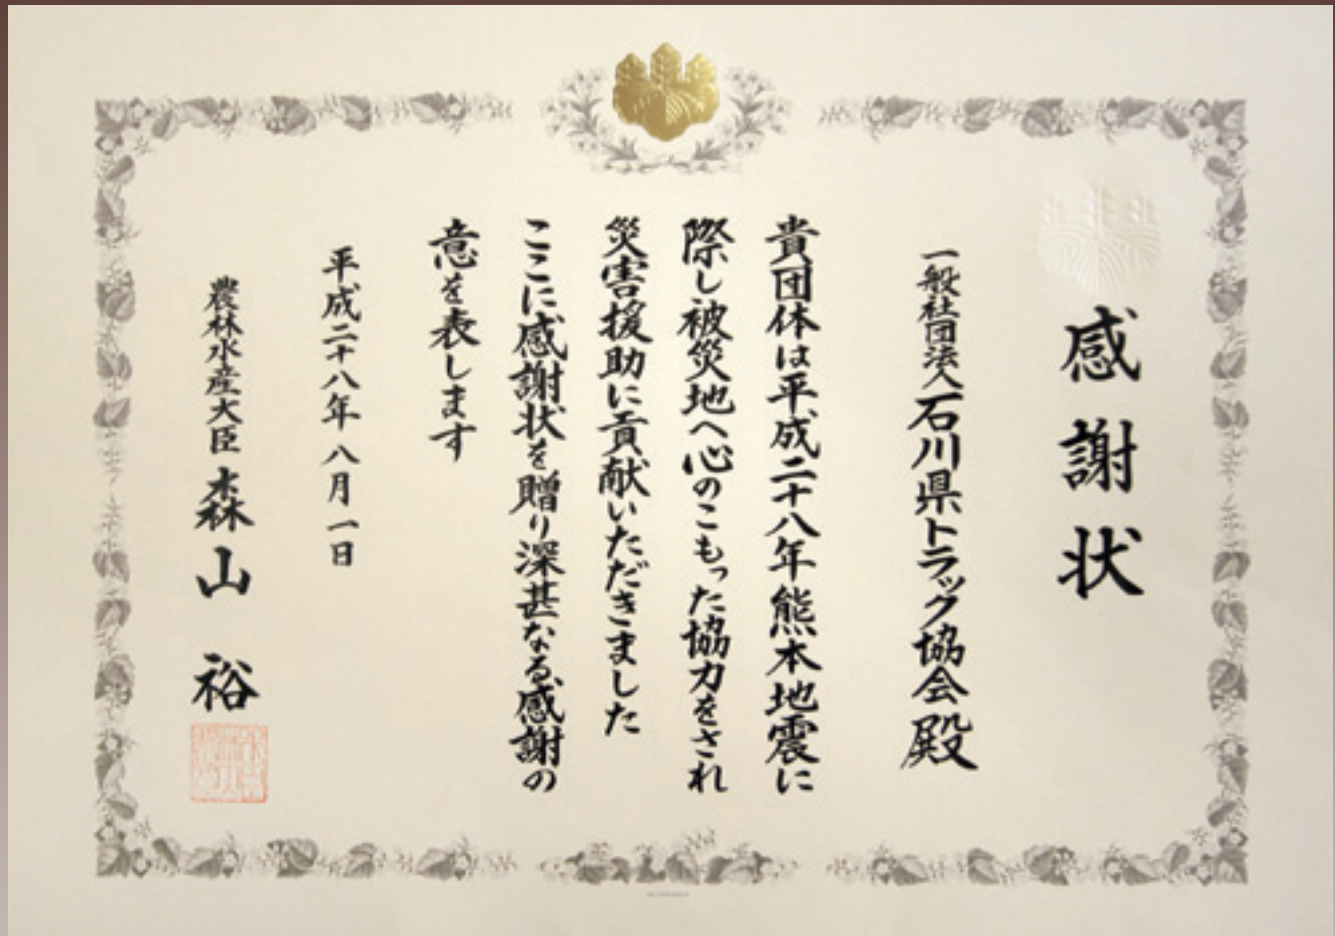 感謝状
一般社団法人石川県トラック協会殿
貴団体は平成二十八年熊本地震に
際し被災地へ心のこもった協力をされ
災害援助に貢献いただきました
ここに感謝状を贈り深甚なる感謝の
意を表します
平成二十八年八月一日
農林水産大臣 森山 裕